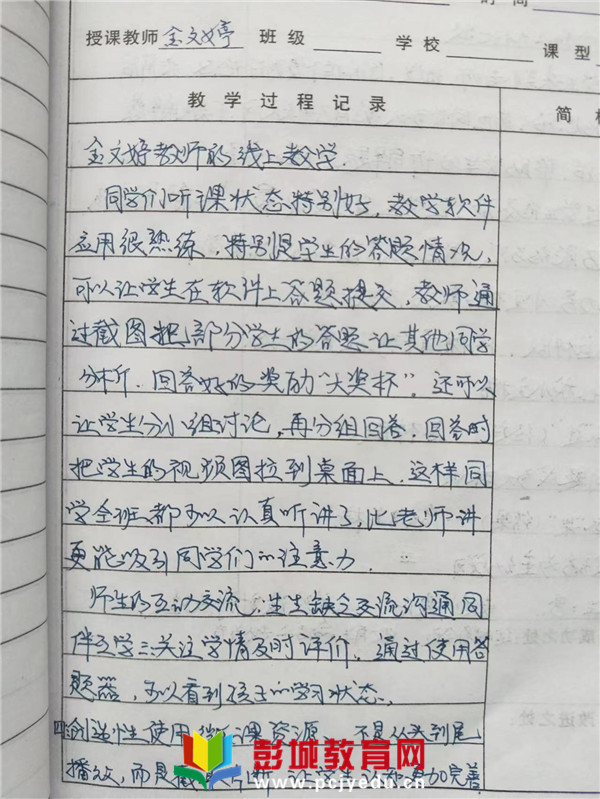 授课教师 金文婷 班级 学校 课型
教学过程记录 简
金文婷教师的线上教学.
同学们听课状态特别好,教学软件
应用很熟练,特别是学生的答题情况,
可以让学生在软件上答题提交,教师通
过截图把部分学生的答题让其他同学
分析.回答好的奖励“大奖杯”.还可以
让学生分小组讨论,再分组回答.回答时
把学生的视频图拉到桌面上.这样同
学全班都可以认真听讲了,比老师讲
更能吸引同学们的注意力.
师生的互动交流,生生缺乏交流沟通同
伴互学三关注学情及时评价.通过使用答
题器,可以看到孩子的学习状态.
四创造性使用微课资源 不是从头到尾
播放,而是截 完善
彭城教育网
www.pcjyedu.cn
成功之处
改进之处